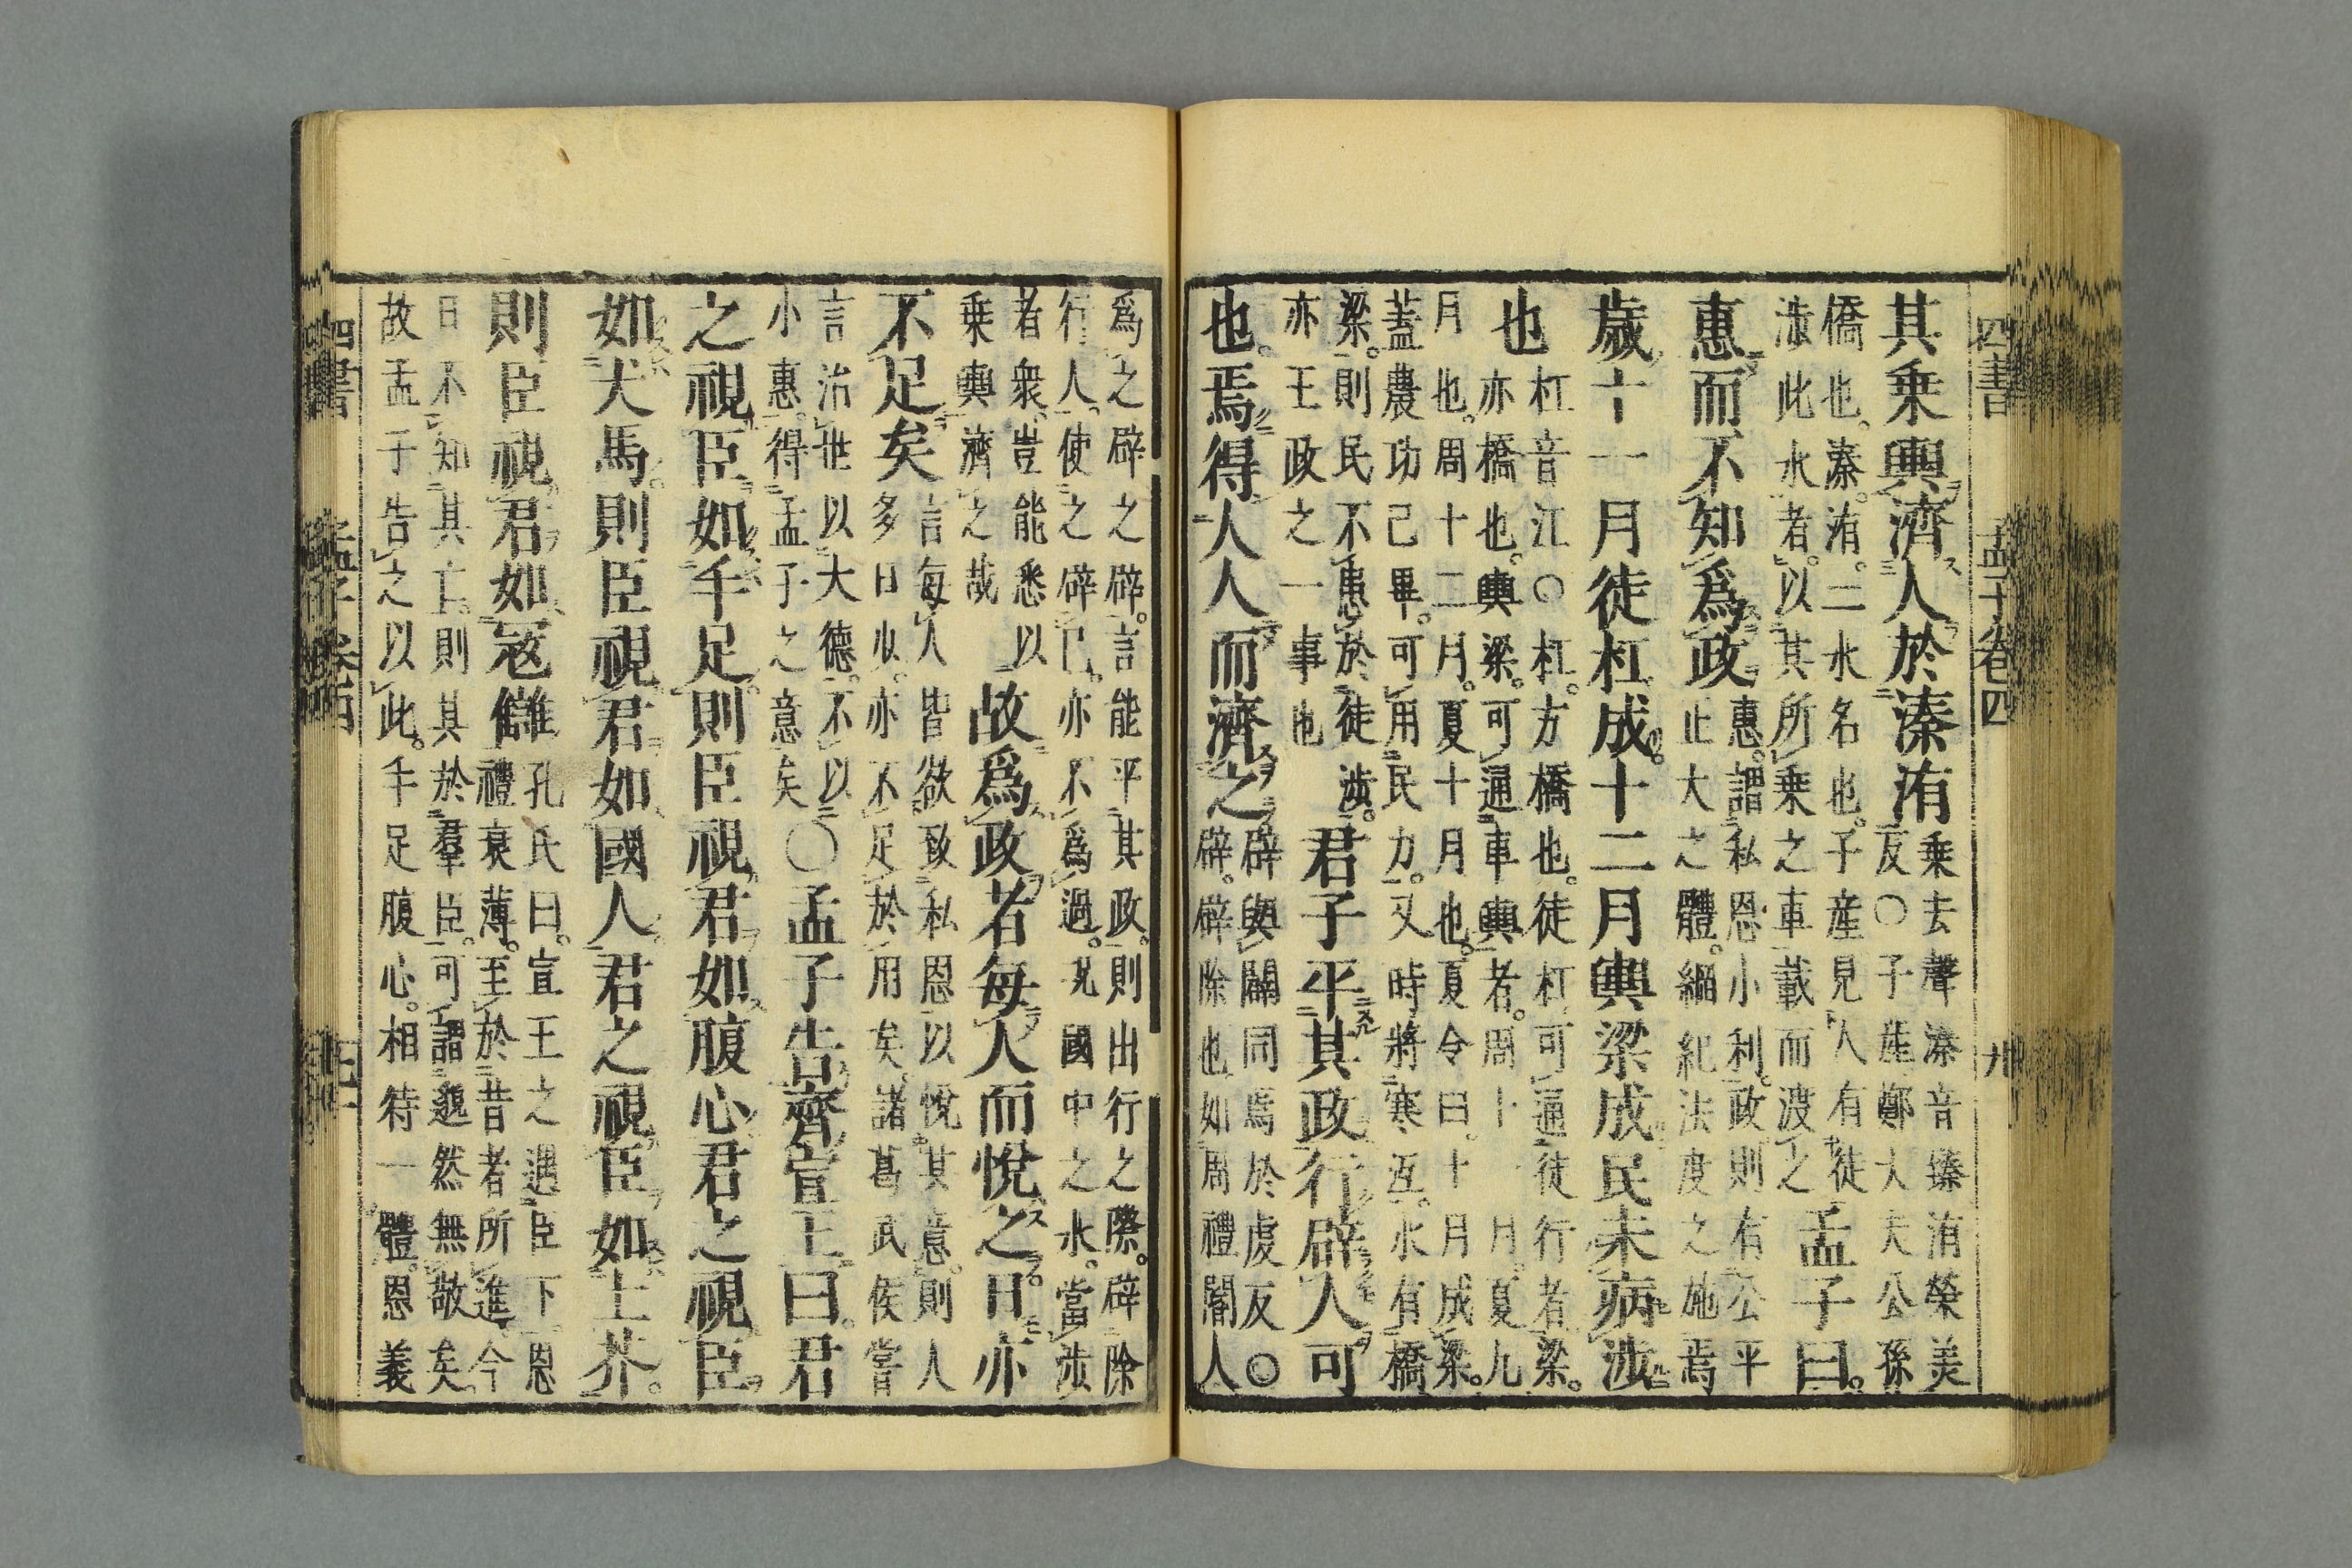 四書 孟子卷四 九
其乗輿濟人於溱洧
乗去聲溱音臻洧榮美
友○子産鄭大夫公孫
僑也溱洧二水名也子産見人有徒
渉此水者以其所乗之車載而渡之
孟子曰
惠而不知爲政
惠謂私恩小利政則有公平
正大之體綱紀法度之施焉
歲十一月徒杠成十二月輿梁成民未病渉
也
杠音江○杠方橋也徒杠可通徒行者梁
亦橋也輿梁可通車輿者周十一月夏九
月也周十二月夏十月也夏令曰十月成梁
蓋農功已畢可用民力又時將寒沍水有橋
梁則民不患於徒渉
亦王政之一事也
君子平其政行辟人可
也焉得人人而濟之
辟與闢同焉於虔反○
辟辟除也如周禮閽人
爲之辟之辟言能平其政則出行之際辟除
行人使之辟己亦不爲過况國中之水當渉
者衆豈能悉以
乗輿濟之哉
故爲政者毎人而悅之日亦
不足矣
言毎人皆欲致私恩以悅其意則人
多日少亦不足於用矣諸葛武侯嘗
言治世以大德不以
小惠得孟子之意矣
○孟子告齊宣王曰君
之視臣如手足則臣視君如腹心君之視臣
如犬馬則臣視君如國人君之視臣如土芥
則臣視君如冦讎
孔氏曰宣王之遇臣下恩
禮衰薄至於昔者所進今
日不知其亡則其於羣臣可謂邈然無敬矣
故孟子告之以此手足腹心相待一體恩義
四書 孟子卷四